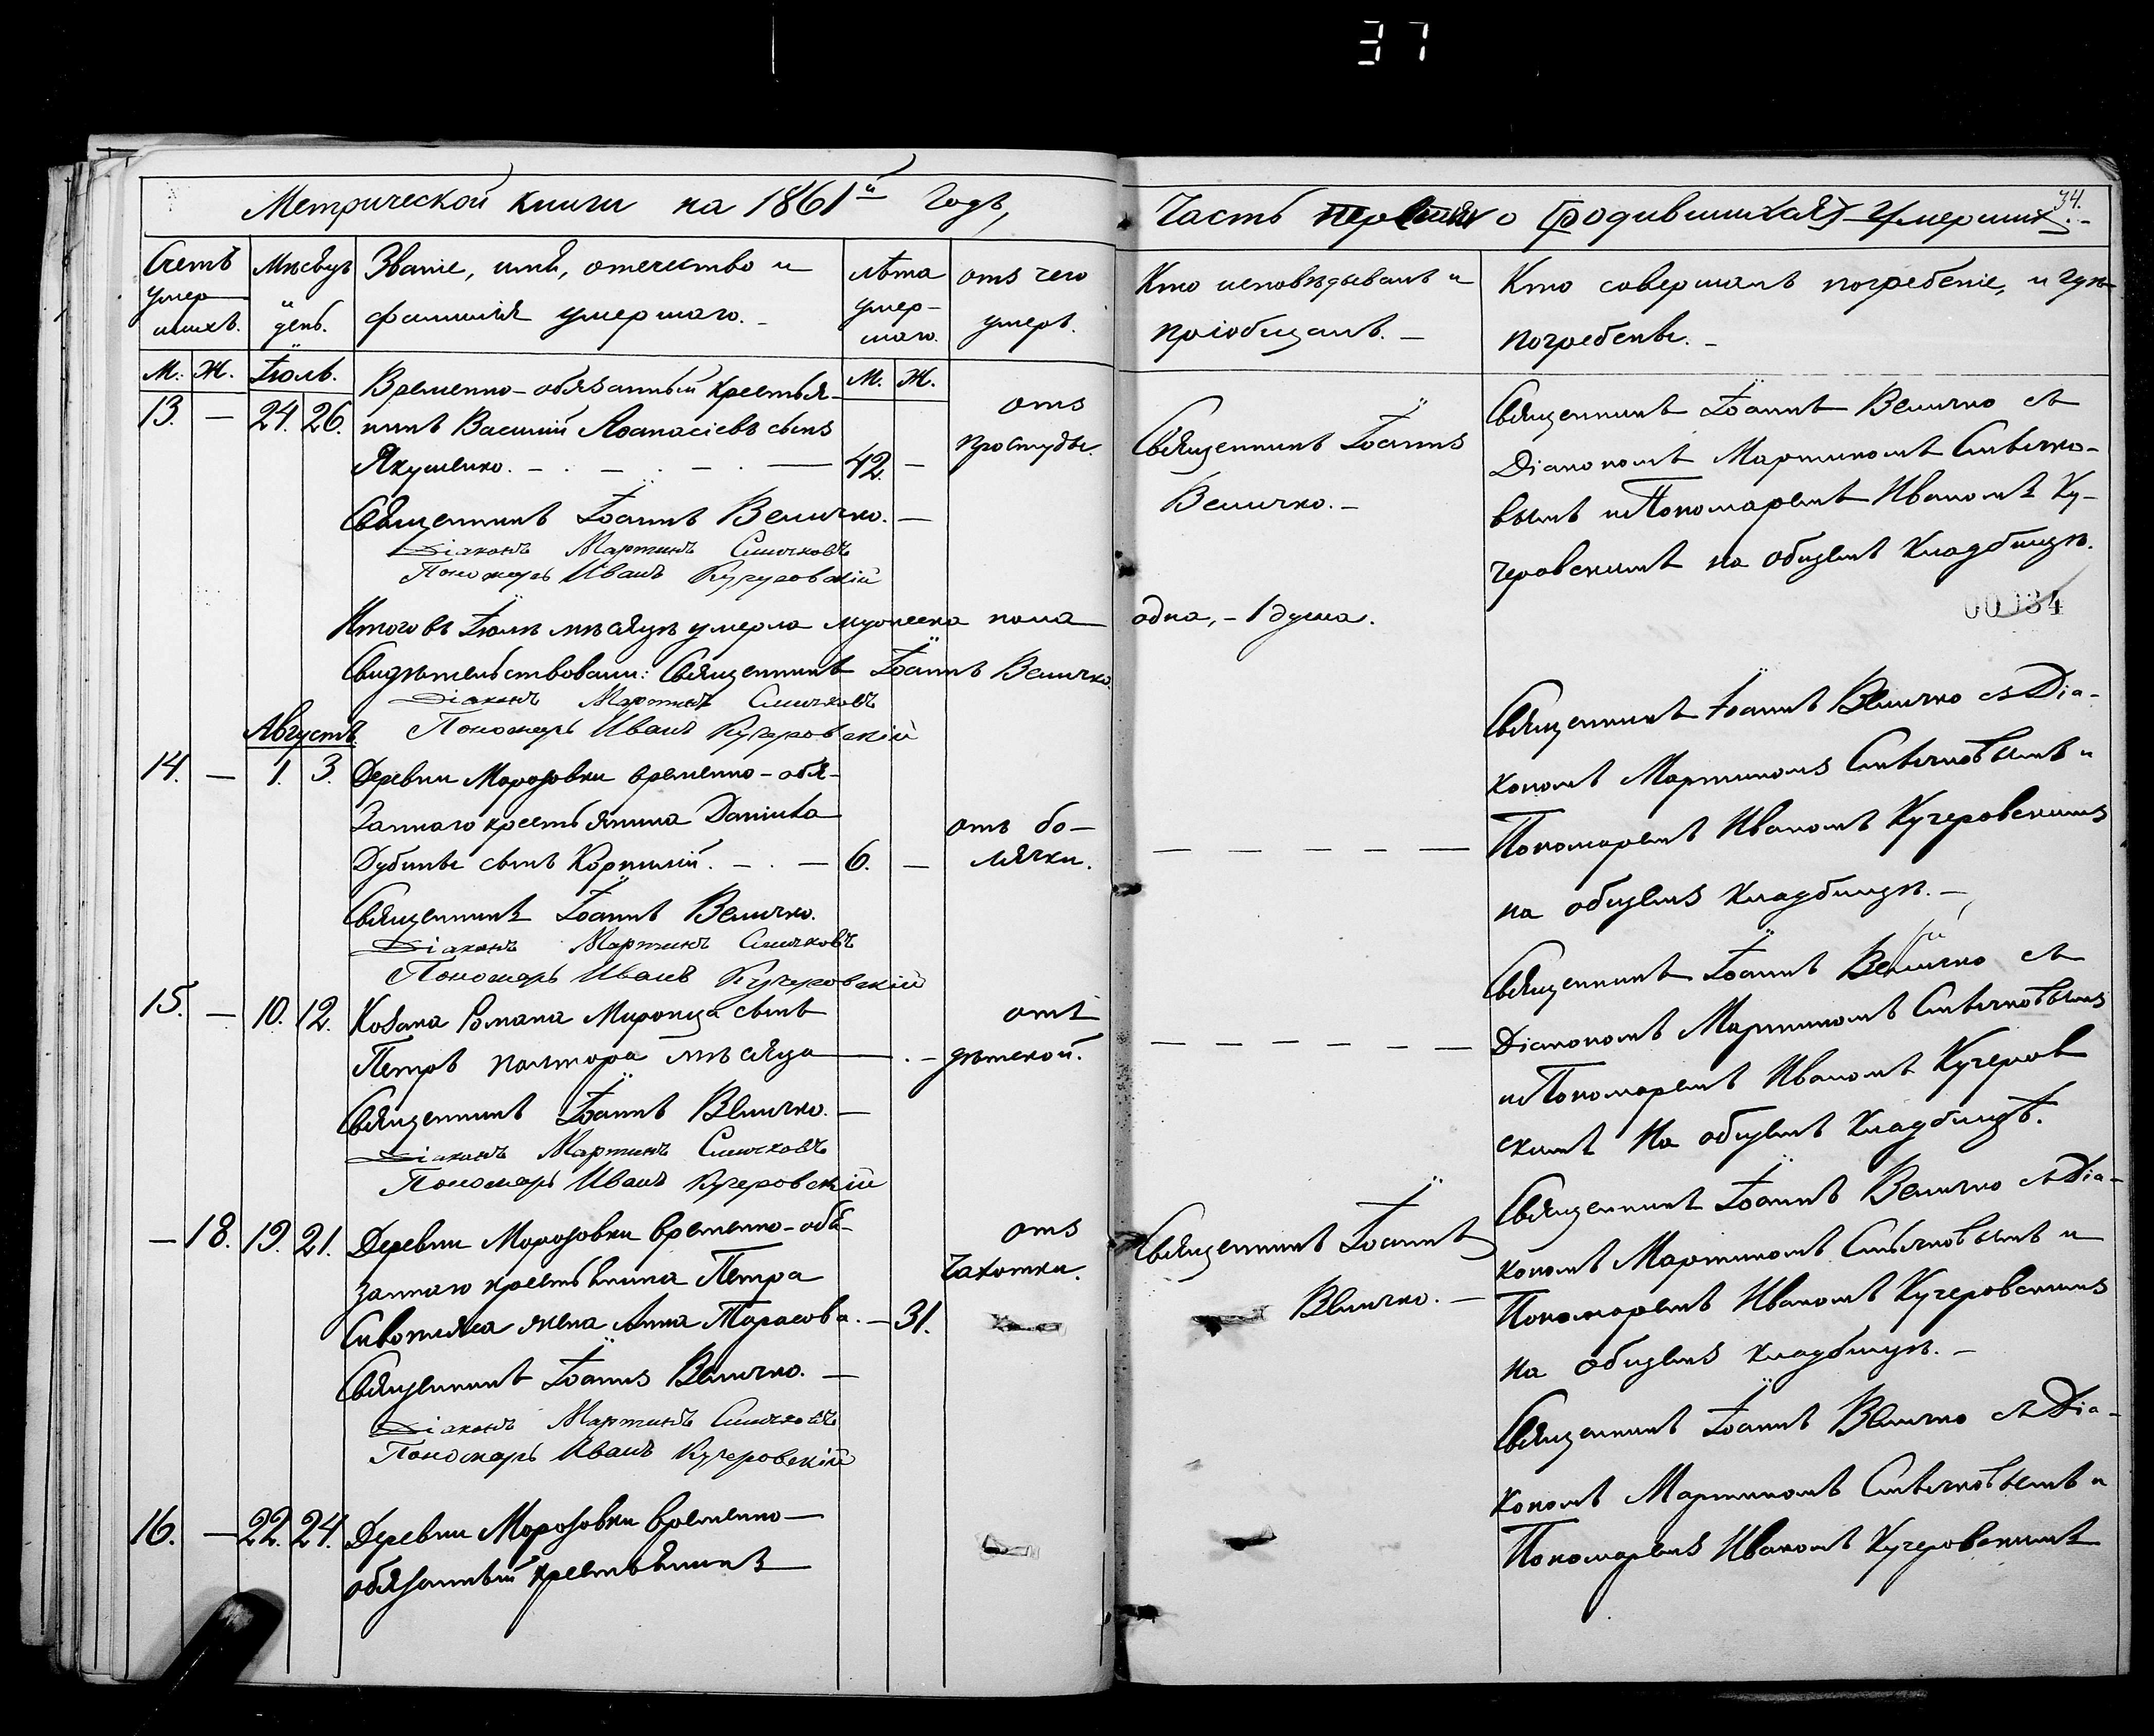 37
Метрической книги на 1861й Годъ,
Счетъ умер шихъ.
Мѣсяцъ и день.
Званіе, имя, отечество и фамилія умершаго. -
лѣта умер- шаго.
отъ чего умеръ.
М. Ж. Іюль. М. Ж.
13. — 24. 26. Временно-обязанный крестья-
нинъ Василій Аѳанасіевъ сынъ
Якушенко. — 42. — отъ простуды.
Священникъ Іоаннъ Величко. —
Діаконъ Мартинъ
Пономарь Иванъ Кучеровскій
Итого въ Іюлѣ мѣсяцѣ умерло мужеска пола
Свидѣтельствовали: Священникъ Іоаннъ Величко.
Діаконъ Мартинъ
Пономарь Иванъ Кучеровскій
Августъ.
14. — 1. 3. Деревни Морозовки временно-обя-
заннаго крестьянина Даніила
Дубины сынъ Корнилій. — 6. — отъ бо-
лячки.
Священникъ Іоаннъ Величко.
Діаконъ Мартинъ
Пономарь Иванъ Кучеровскій
15. — 10. 12. Козака Романа Миронца сынъ
Петръ полтора мѣсяца — отъ
дѣтской.
Священникъ Іоаннъ Величко. —
Діаконъ Мартинъ
Пономарь Иванъ Кучеровскій
— 18. 19. 21. Деревни Морозовки временно-обя-
заннаго крестьянина Петра
жена Анна Тарасова. — 31. отъ
Чахотки.
Священникъ Іоаннъ Величко. —
Діаконъ Мартинъ
Пономарь Иванъ Кучеровскій
16. — 22. 24. Деревни Морозовки временно-
обязанный крестьянинъ
34.
Часть о (родившихся) Умершихъ. -
Кто исповѣдывалъ и
пріобщалъ. —
Кто совершалъ погребеніе, и гдѣ
погребены. -
Священникъ Іоаннъ
Величко. —
Священникъ Іоаннъ Величко съ
Діакономъ Мартиномъ
вымъ и Пономаремъ Иваномъ Ку-
черовскимъ на общемъ кладбищѣ.
00034
одна, - 1 душа.
Священникъ Іоаннъ Величко съ Діа-
кономъ Мартиномъ и
Пономаремъ Иваномъ Кучеровскимъ
на общемъ кладбищѣ. —
Священникъ Іоаннъ Величко съ
Діакономъ Мартиномъ
и Пономаремъ Иваномъ Кучеров
скимъ на общемъ кладбищѣ.
Священникъ Іоаннъ
Величко. —
Священникъ Іоаннъ Величко съ Діа-
кономъ Мартиномъ и
Пономаремъ Иваномъ Кучеровскимъ
на общемъ кладбищѣ. —
Священникъ Іоаннъ Величко съ Діа-
кономъ Мартиномъ и
Пономаремъ Иваномъ Кучеровскимъ